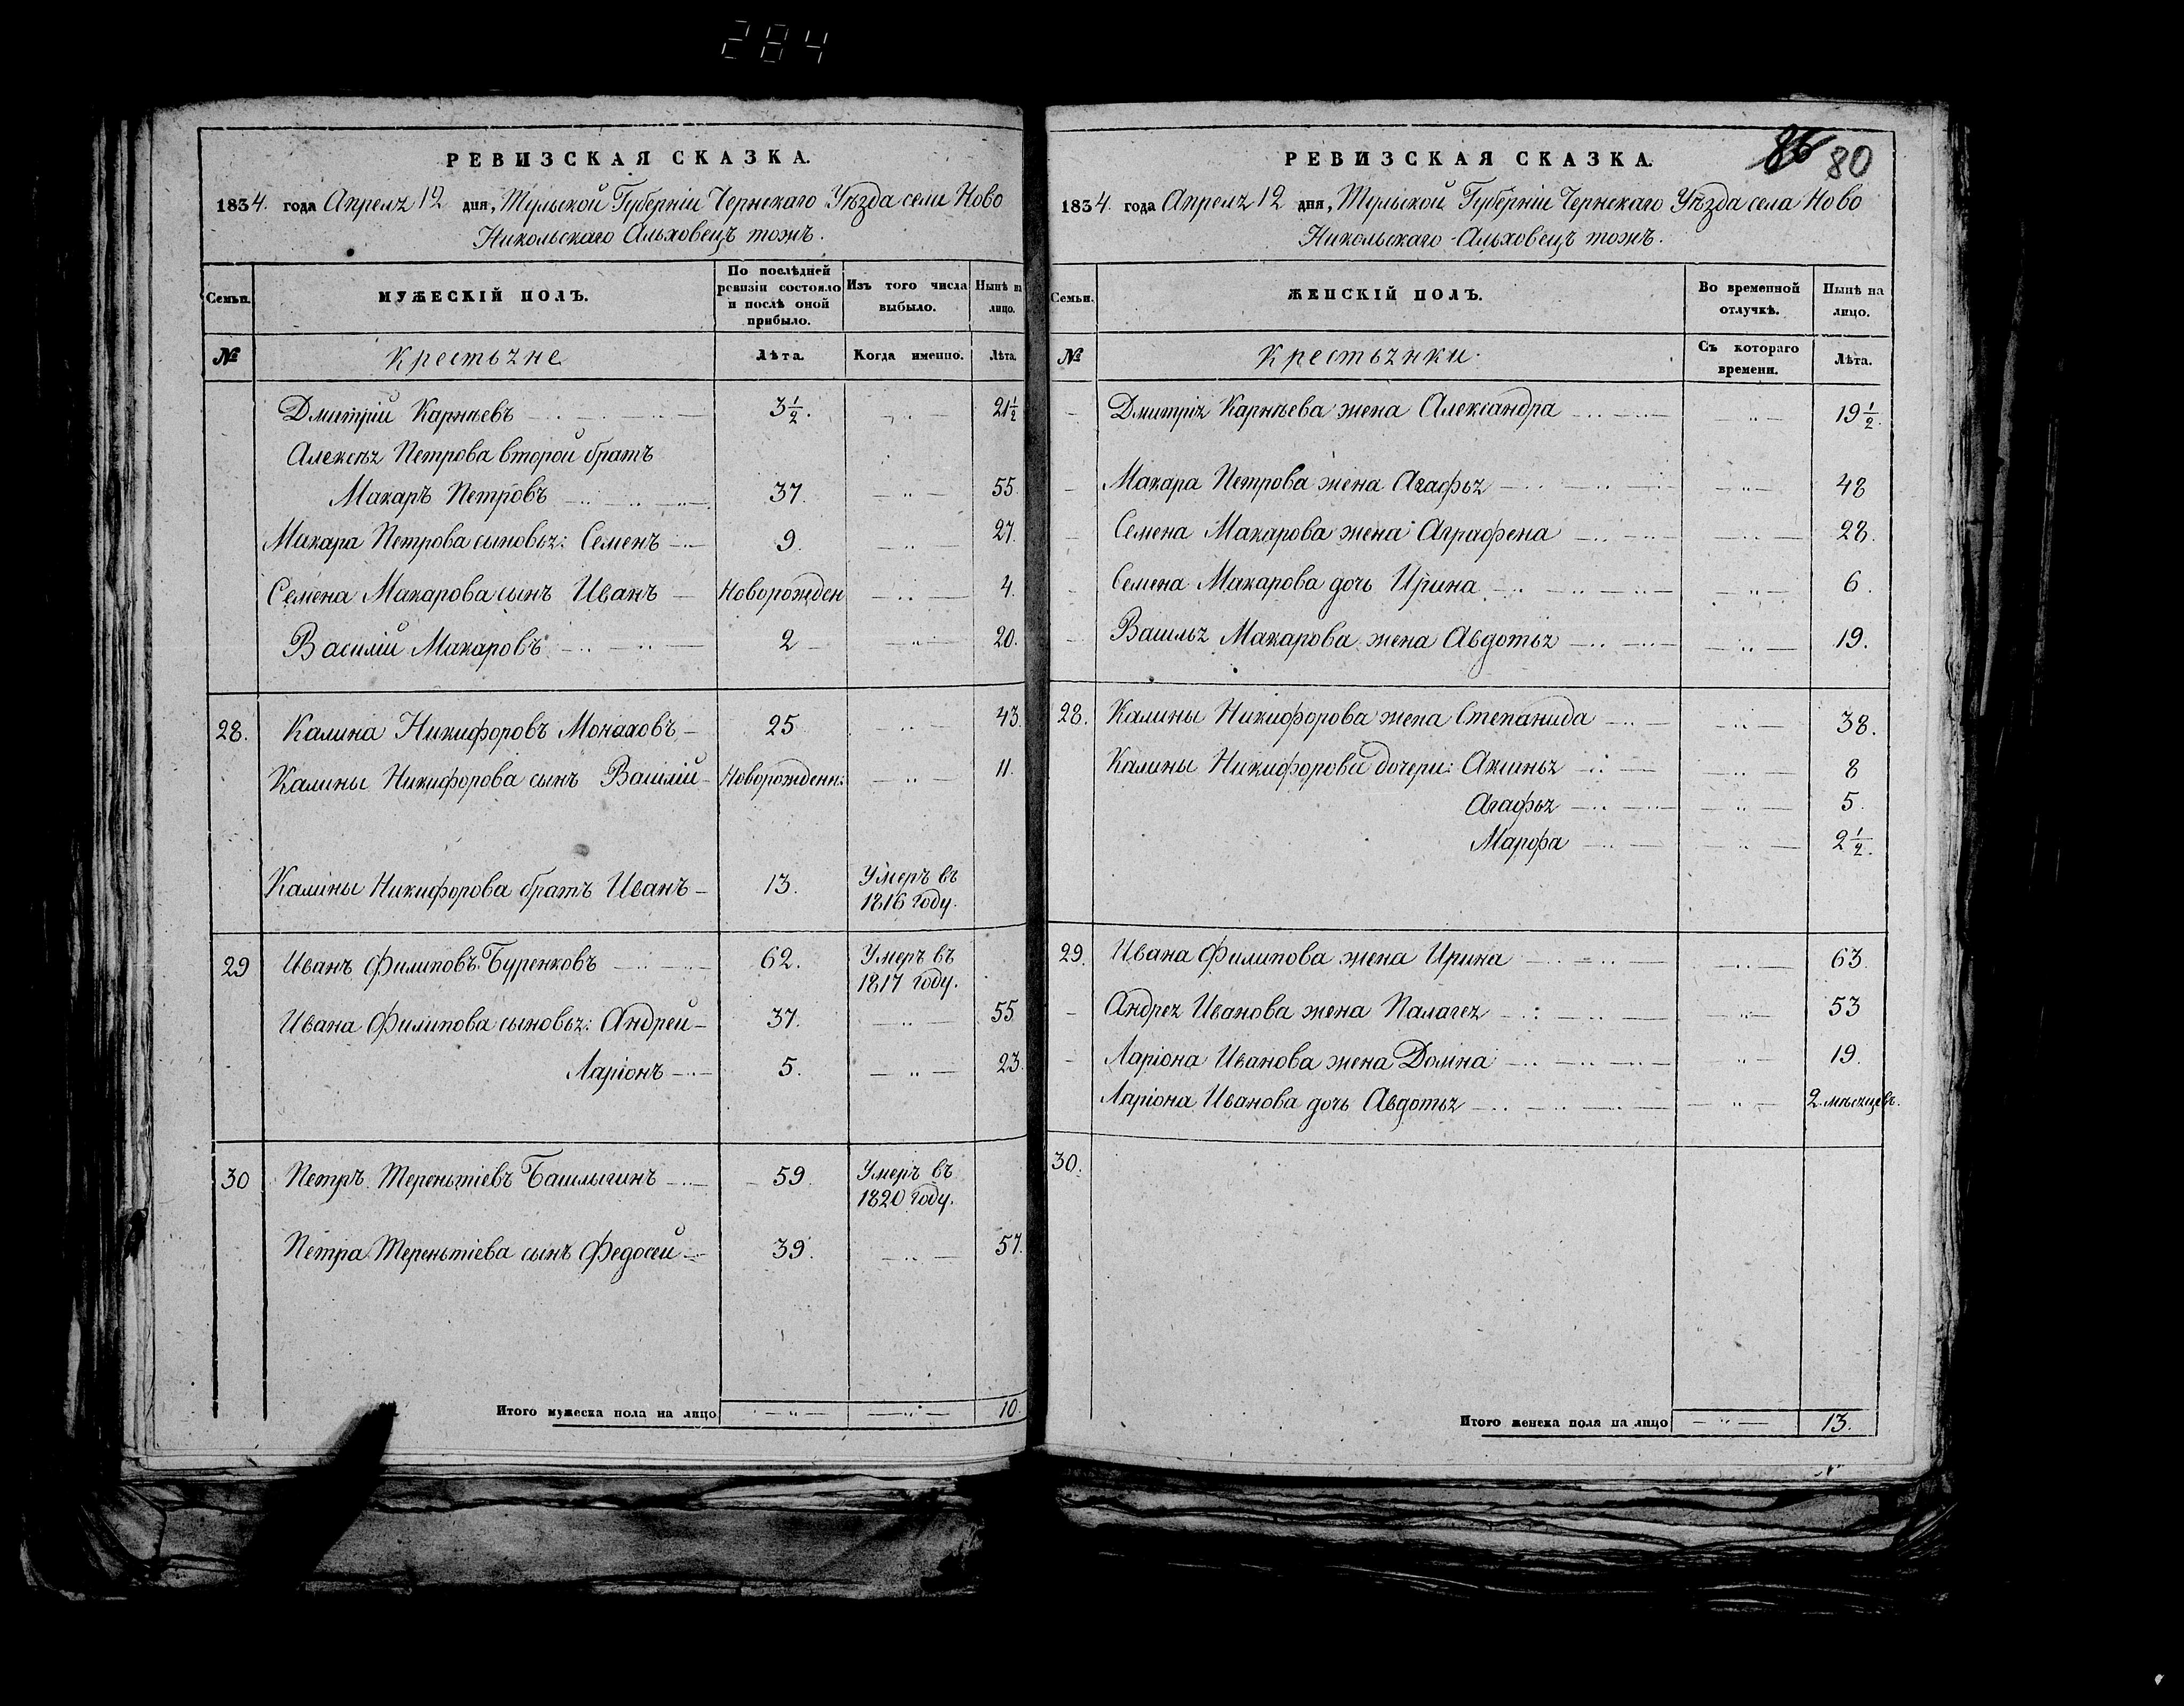 284
РЕВИЗСКАЯ СКАЗКА.
1834. года Апреля 12 дня, Тульской Губерніи Чернскаго Уѣзда села Ново
Никольскаго Альховецъ тожъ.
Семьи.
МУЖЕСКІЙ ПОЛЪ.
По послѣдней ревизіи состояло и послѣ оной прибыло.
Изъ того числа выбыло.
Нынѣ на лицо.
№ Крестьяне Лѣта. Когда именно. Лѣта.
Дмитрій Карнѣевъ 3½. 21½
Алексѣя Петрова второй братъ
Макаръ Петровъ 37. 55.
Макара Петрова сыновья: Семенъ 9. 27.
Семена Макарова сынъ Иванъ Новорожден 4.
Василій Макаровъ 2 20.
28. Калина Никифоровъ Монаховъ 25 43.
Калины Никифорова сынъ Василій Новорожденн: 11.
Калины Никифорова братъ Иванъ 13. Умеръ въ
1816 году.
29 Иванъ Филиповъ Буренковъ 62. Умеръ въ
1817 году.
Ивана Филипова сыновья: Андрей 37. 55
Ларіонъ 5. 23.
30 Петръ Терентьіевъ Башлыгинъ 59. Умеръ въ
1820 году.
Петра Терентьіева сынъ Федосей 39. 57.
Итого мужеска пола на лицо 10.
86 80
РЕВИЗСКАЯ СКАЗКА.
1834. года Апреля 12 дня, Тульской Губерніи Чернскаго Уѣзда села Ново
Никольскаго Альховецъ тожъ.
Семьи.
ЖЕНСКІЙ ПОЛЪ.
Во временной отлучкѣ.
Нынѣ на лицо.
№ Крестьянки. Съ котораго времени. Лѣта.
Дмитрія Карнѣева жена Александра 19½.
Макара Петрова жена Агафья 48
Семена Макарова жена Аграфена 28.
Семена Макарова дочь Ирина 6.
Василья Макарова жена Авдотья 19.
28. Калины Никифорова жена Степанида 38.
Калины Никифорова дочери: Аксинья 8
Агафья 5.
Марфа 2½.
29. Ивана Филипова жена Ирина 63.
Андрея Иванова жена Палагея 53
Ларіона Иванова жена Домна 19.
Ларіона Иванова дочь Авдотья 2. мѣсяцевъ.
30.
Итого женска пола на лицо 13.